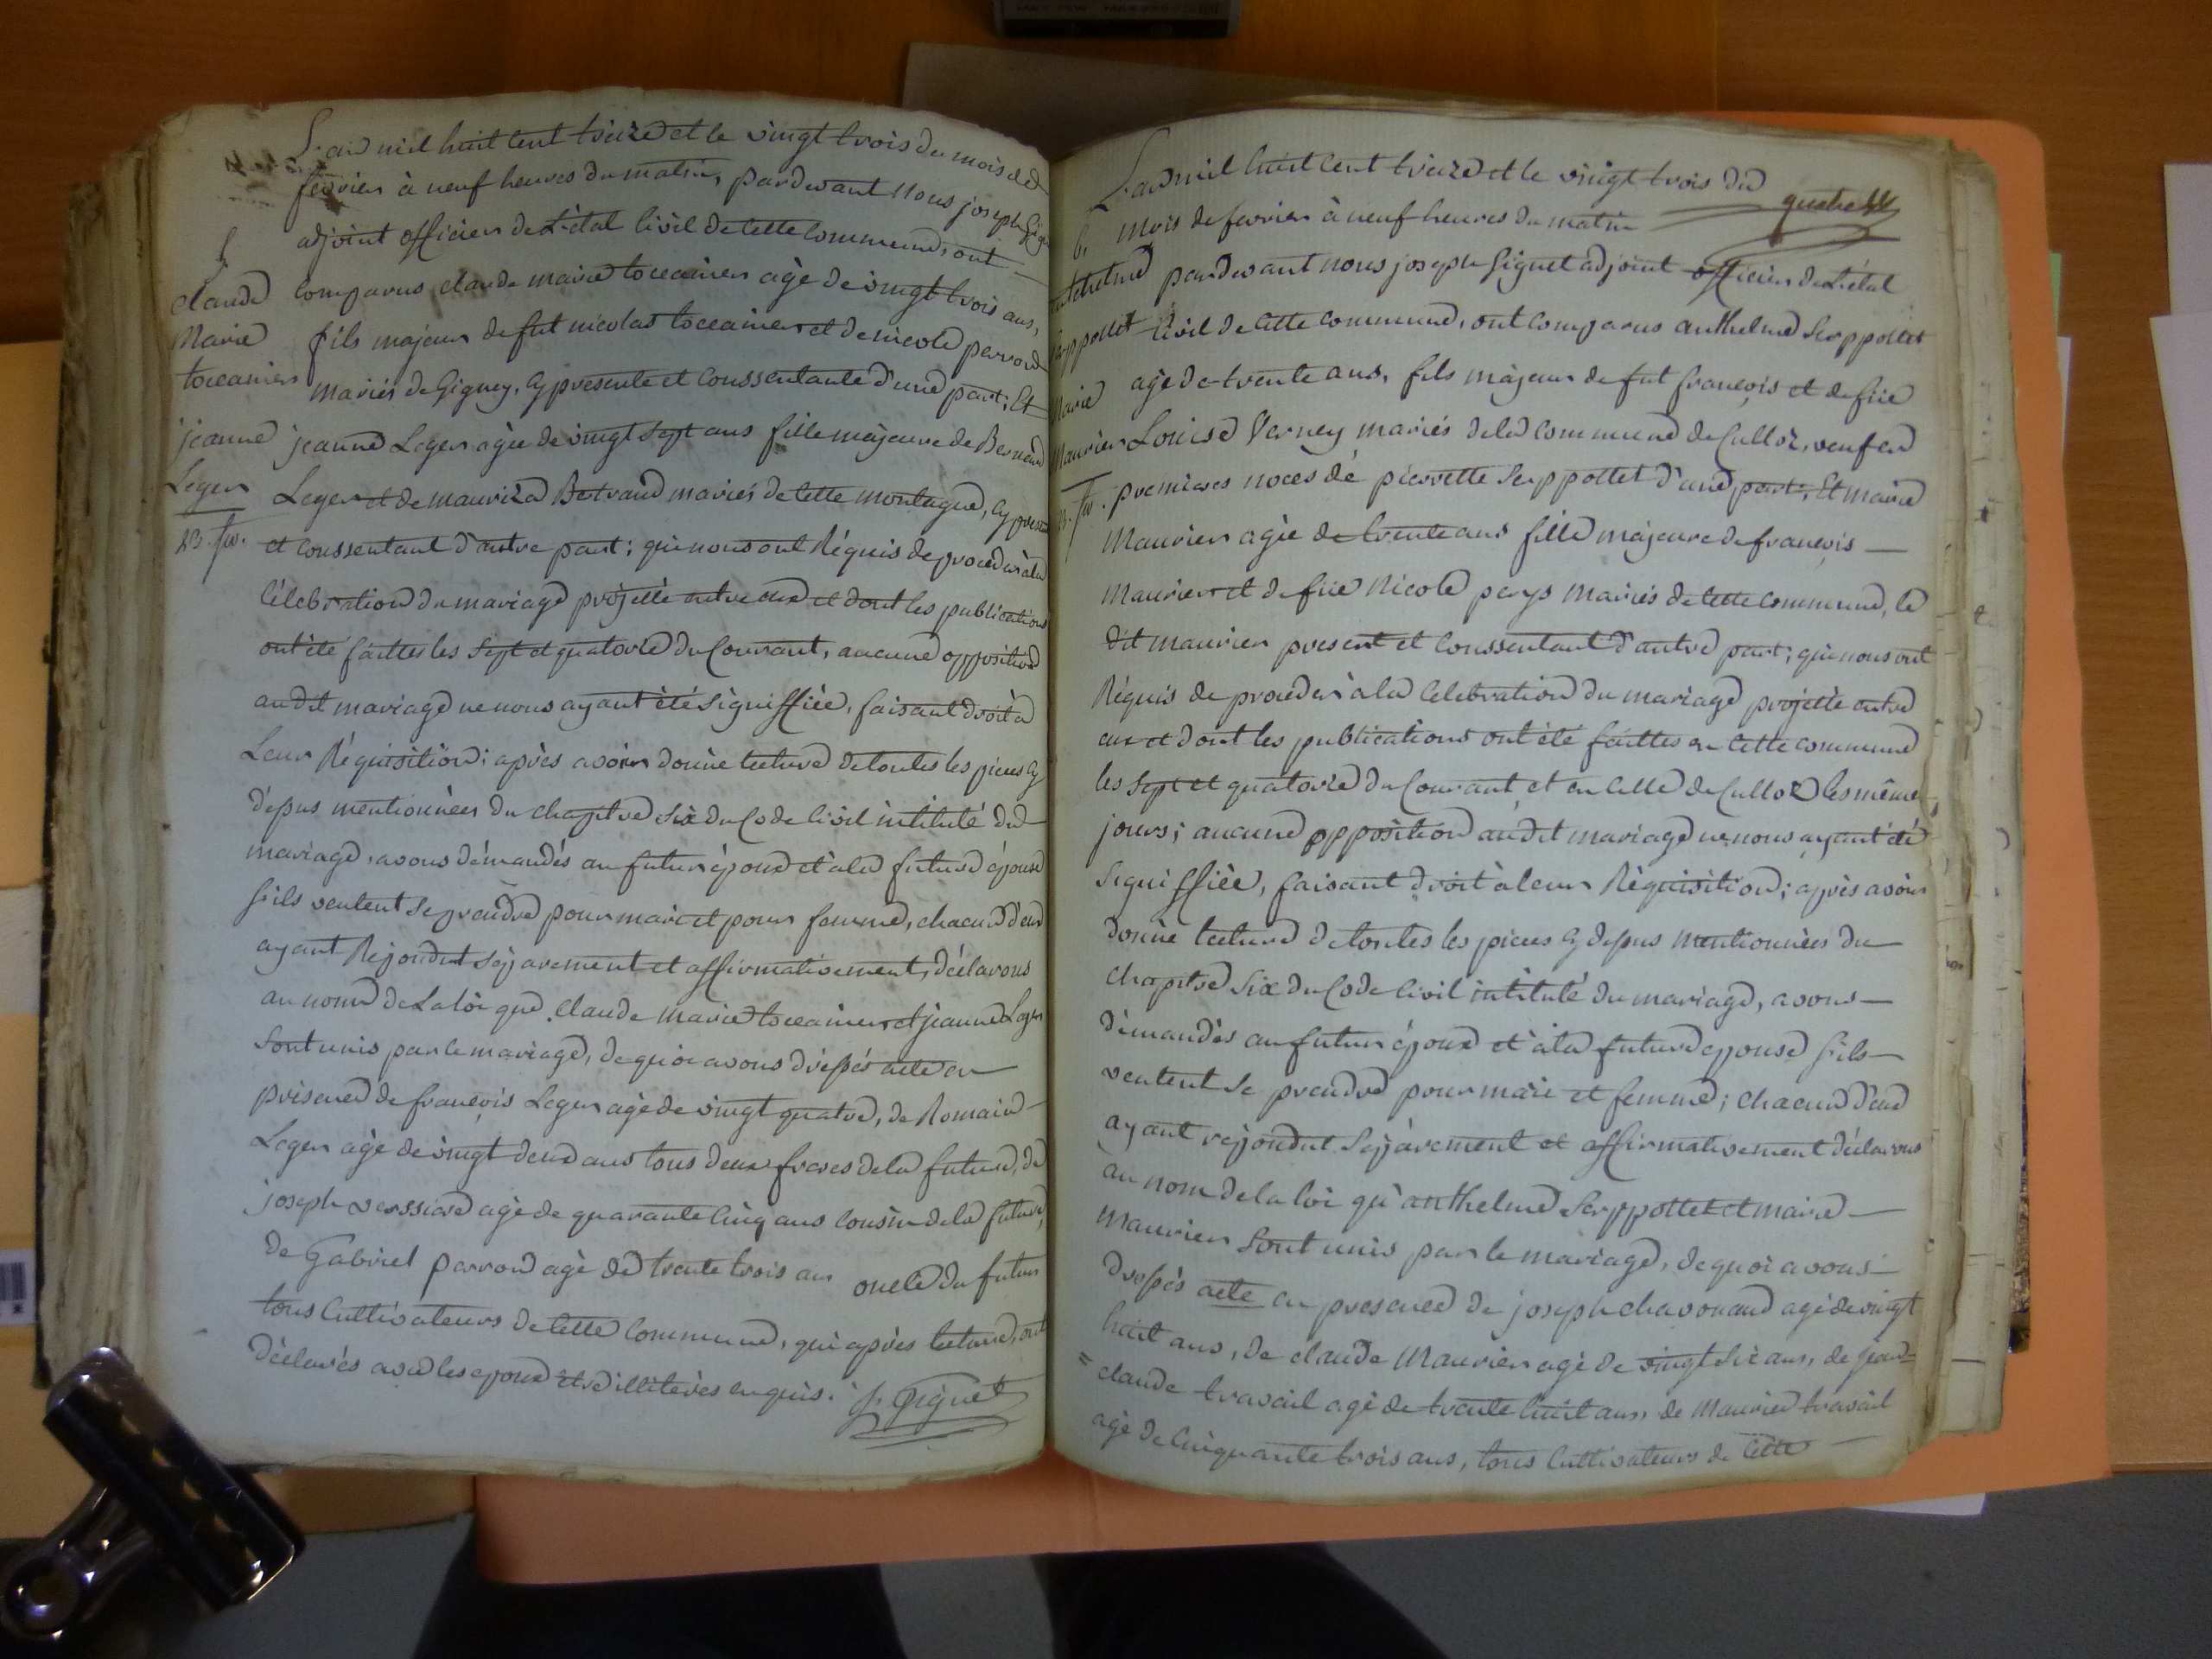 L'an mil huit cent treize et le vingt trois du mois de
fevrier à neuf heures du matin, pardevant nous joseph Gignet
adjoint officier de L'état Civil de cette commune, ont
5
Claude
Marie
toccanier
jeanne
Leger
comparus claude marie toccanier agé de vingt trois ans,
fils majeur de fut nicolas toccanier et de nicole perron
mariés de Gigney, cy presente et conssentante d'une part; Et
jeanne Leger agée de vingt sept ans fille majeure de Bernard
Leger et de mauriza Bertrand mariés de cette montagne, cy present
et conssentant d'autre part; qui nous ont Réquis de procéder à la
Célébration du mariage projetté entre eux et dont les publications
ont été faittes les sept et quatorze du Courant, aucune opposition
audit mariage ne nous ayant été signiffiée, faisant droit à
Leur Réquisition; après avoir donné lecture de toutes les pieces cy
dessus mentionnées du chapitre six du Code Civil intitulé du
mariage, avons démandés au futur époux et à la future épouse
s'ils veulent se prendre pour mari et pour femme, chacun d'eux
ayant Repondut séparement et affirmativement, déclarons
au nom de La loi que Claude marie toccanier et jeanne Leger
sont unis par le mariage, de quoi avons dréssés acte en
présence de françois Leger agé de vingt quatre, de Romain
Leger agé de vingt deux ans tous deux freres de la future, de
joseph verssiore agé de quarante cinq ans cousin de la future,
de Gabriel perron agé de trente trois ans oncle du futur
tous cultivateurs de cette commune, qui après lecture, ont
déclarés avec les epoux etre illiterés enquis. J. Gignet
L'an mil huit cent treize et le vingt trois du
quatre
mois de fevrier à neuf heures du matin
6
anthelme
Serppollet
Marie
Maurier
pardevant nous joseph Gignet adjoint officier de L'état
Civil de cette commune, ont comparus anthelme Serppollet
agé de trente ans, fils majeur de fut françois et de füe
Louise Verney mariés de la commune de Culloz, veuf en
premieres noces de pierrette Serppollet d'une part; Et marie
Maurier agée de trente ans fille majeure de françois
Maurier et de füe Nicole perys mariés de cette commune, le
dit maurier present et conssentant d'autre part; qui nous ont
Réquis de proceder à la Celebration du mariage projetté entre
eux et dont les publications ont été faittes en cette commune
les sept et quatorze du Courant et en celle de Culloz les mêmes
jours; aucune opposition audit mariage ne nous ayant été
signiffiée, faisant droit à leur Réquisition; après avoir
donné lecture de toutes les pieces cy dessus mentionnées du
Chapitre six du Code Civil intitulé du mariage, avons
démandés au futur époux et à la future epouse s'ils
veulent se prendre pour mari et femme; chacun d'eux
ayant repondut séparement et affirmativement déclarons
au nom de la loi qu'anthelme Serppollet et marie
Maurier sont unis par le mariage, de quoi avons
dressés acte en presence de joseph chavonand agé de vingt
huit ans, de claude Maurier agé de vingt six ans, de jean
= claude travail agé de trente huit ans, de Maurice travail
agé de cinquante trois ans, tous Cultivateurs de cette